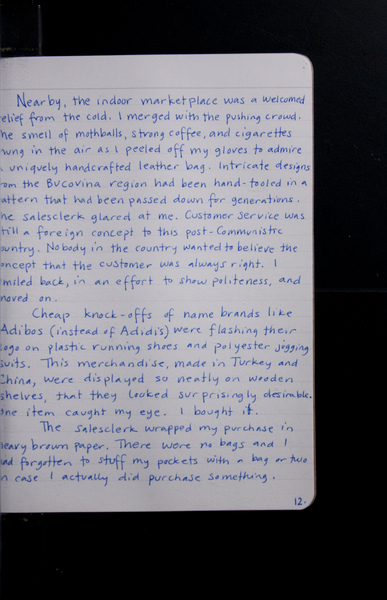 Nearby, the indoor marketplace was a welcomed
elief from the cold. I merged with the pushing crowd.
he smell of mothballs, strong coffee, and cigarettes
ung in the air as I peeled off my gloves to admire
uniquely handcrafted leather bag. Intricate designs
om the Bucovina region had been hand-tooled in a
attern that had been passed down for generations.
he salesclerk glared at me. Customer service was
till a foreign concept to this post-Communistic
ountry. Nobody in the country wanted to believe the
oncept that the customer was always right. I
miled back, in an effort to show politeness, and
moved on.
Cheap knock-offs of name brands like
Adibos (instead of Adidis) were flashing their
logo on plastic running shoes and polyester jogging
suits. This merchandise, made in Turkey and
China, were displayed so neatly on wooden
shelves, that they looked surprisingly desirable.
One item caught my eye. I bought it.
The salesclerk wrapped my purchase in
eavy brown paper. There were no bags and I
ad forgotten to stuff my pockets with a bag or two
n case I actually did purchase something.
12.